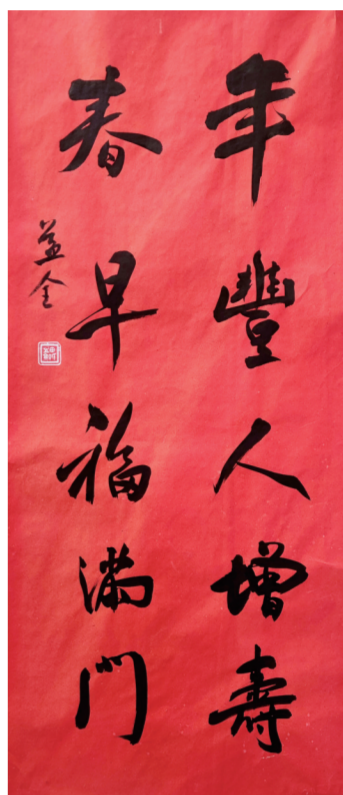 年豐人增壽
春早福滿門
益全